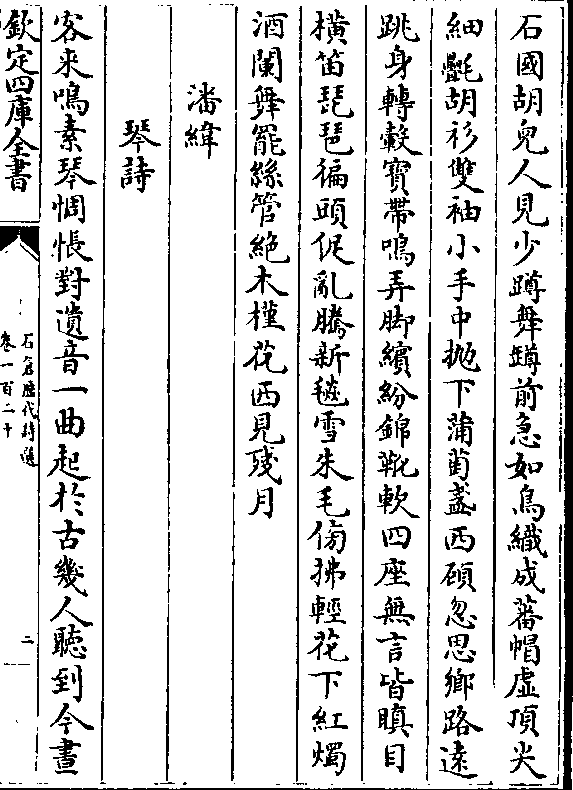 石國胡兒人見少蹲舞蹲前急如鳥織成蕃帽虛頂尖
細氎胡衫雙袖小手中抛下蒲萄盞西顧忽思鄉路遠
跳身轉轂寶帶鳴弄脚繽紛錦靴軟四座無言皆瞋目
橫笛琵琶徧頭促亂騰新毯雪朱毛傍拂輕花下紅燭
酒闌舞罷絲管絶木槿花西見殘月
潘緯
琴詩
客來鳴素琴惆悵對遺音一曲起於古幾人聽到今晝
欽定四庫全書
石倉歷代詩選
卷一百二十
二